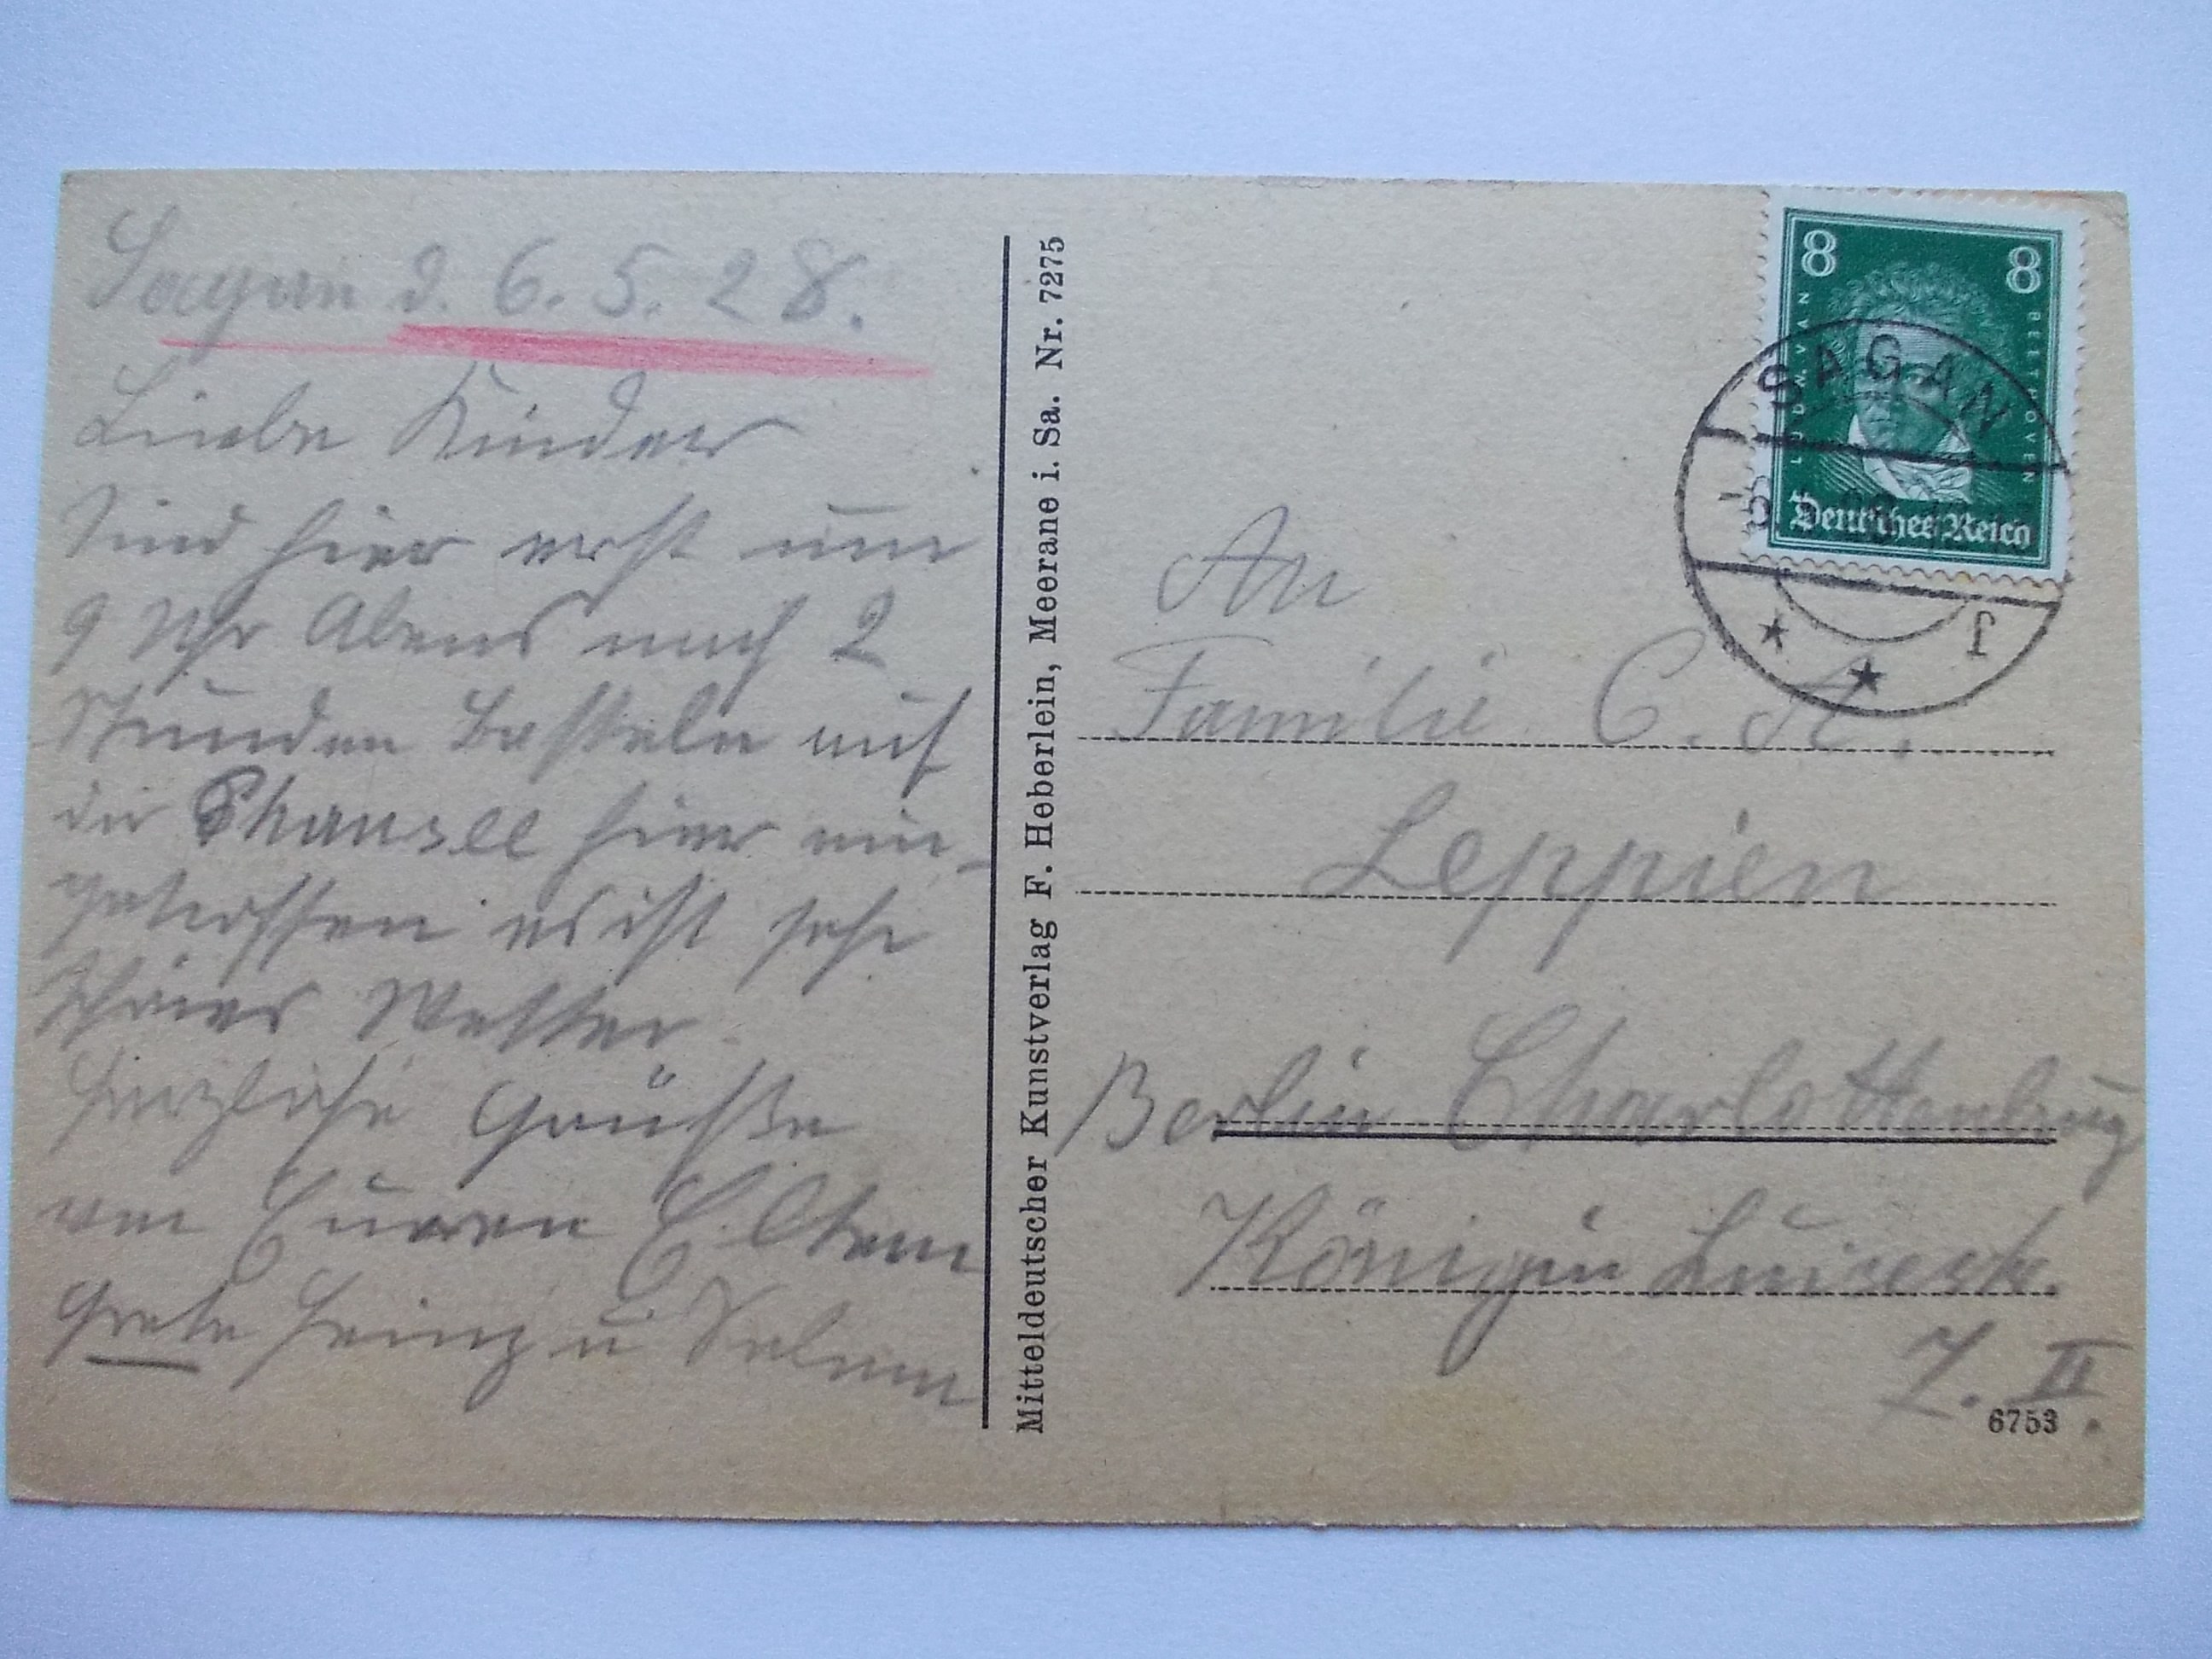 Sagan d. 6. 5. 28.
Liebe Kinder
Sind hier erst um
9 Uhr Abens nach 2
Stunden Basteln auf
die Shausee hier ein-
getroffen es ist sehr
Wetter.
Herzliche Grüße
von Euren Eltern
Grete Heinz u
Mitteldeutscher Kunstverlag F. Heberlein, Meerane i. Sa. Nr. 7275
8 8
LUDW. VAN BEETHOVEN
Deutsches Reich
SAGAN
An
Familie C. A.
Leppien
Berlin Charlottenburg
Königin Luisestr.
7. II.
6753